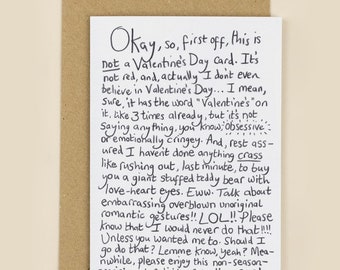 Okay, so, first off, this is
not a Valentine's Day card. It's
not red, and, actually I don't even
believe in Valentine's Day... I mean,
sure, it has the word "Valentine's" on
it, like 3 times already, but it's not
saying anything, you know, obsessive
or emotionally cringey. And, rest ass-
ured I haven't done anything crass
like rushing out, last minute, to buy
you a giant stuffed teddy bear with
love-heart eyes. Eww. Talk about
embarrassing overblown unoriginal
romantic gestures!! LOL!! Please
know that I would never do that!!!!
Unless you wanted me to. Should I
go do that? Lemme know, yeah? Mea-
nwhile, please enjoy this non-season-